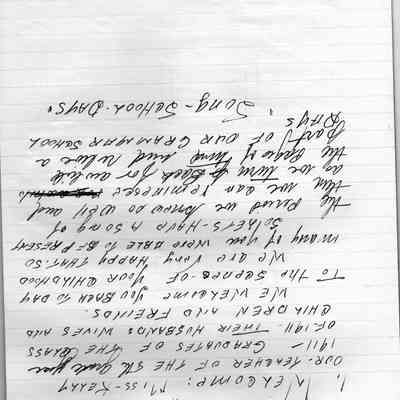 1. WELCOME: MISS-KELLY
OUR-TEACHER OF THE 5th grade year
1911 - GRADUATES OF THE CLASS
OF-1911 THEIR HUSBANDS WIVES AND
CHILDREN AND FREINDS.
WE WELCOME YOU BACK TO DAY
TO THE SCENES-OF YOUR CHILDHOOD
WE ARE VERY HAPPY THAT SO
MANY OF YOU WERE ABLE TO BE PRESENT
- HAVE A SONG OF
the period we know so well and
then we can reminesce
as we turn back for awhile
the Pages of time and relive a
Part OF OUR GRAMMAR SCHOOL
DAYS
SONG-SCHOOL-DAYS.